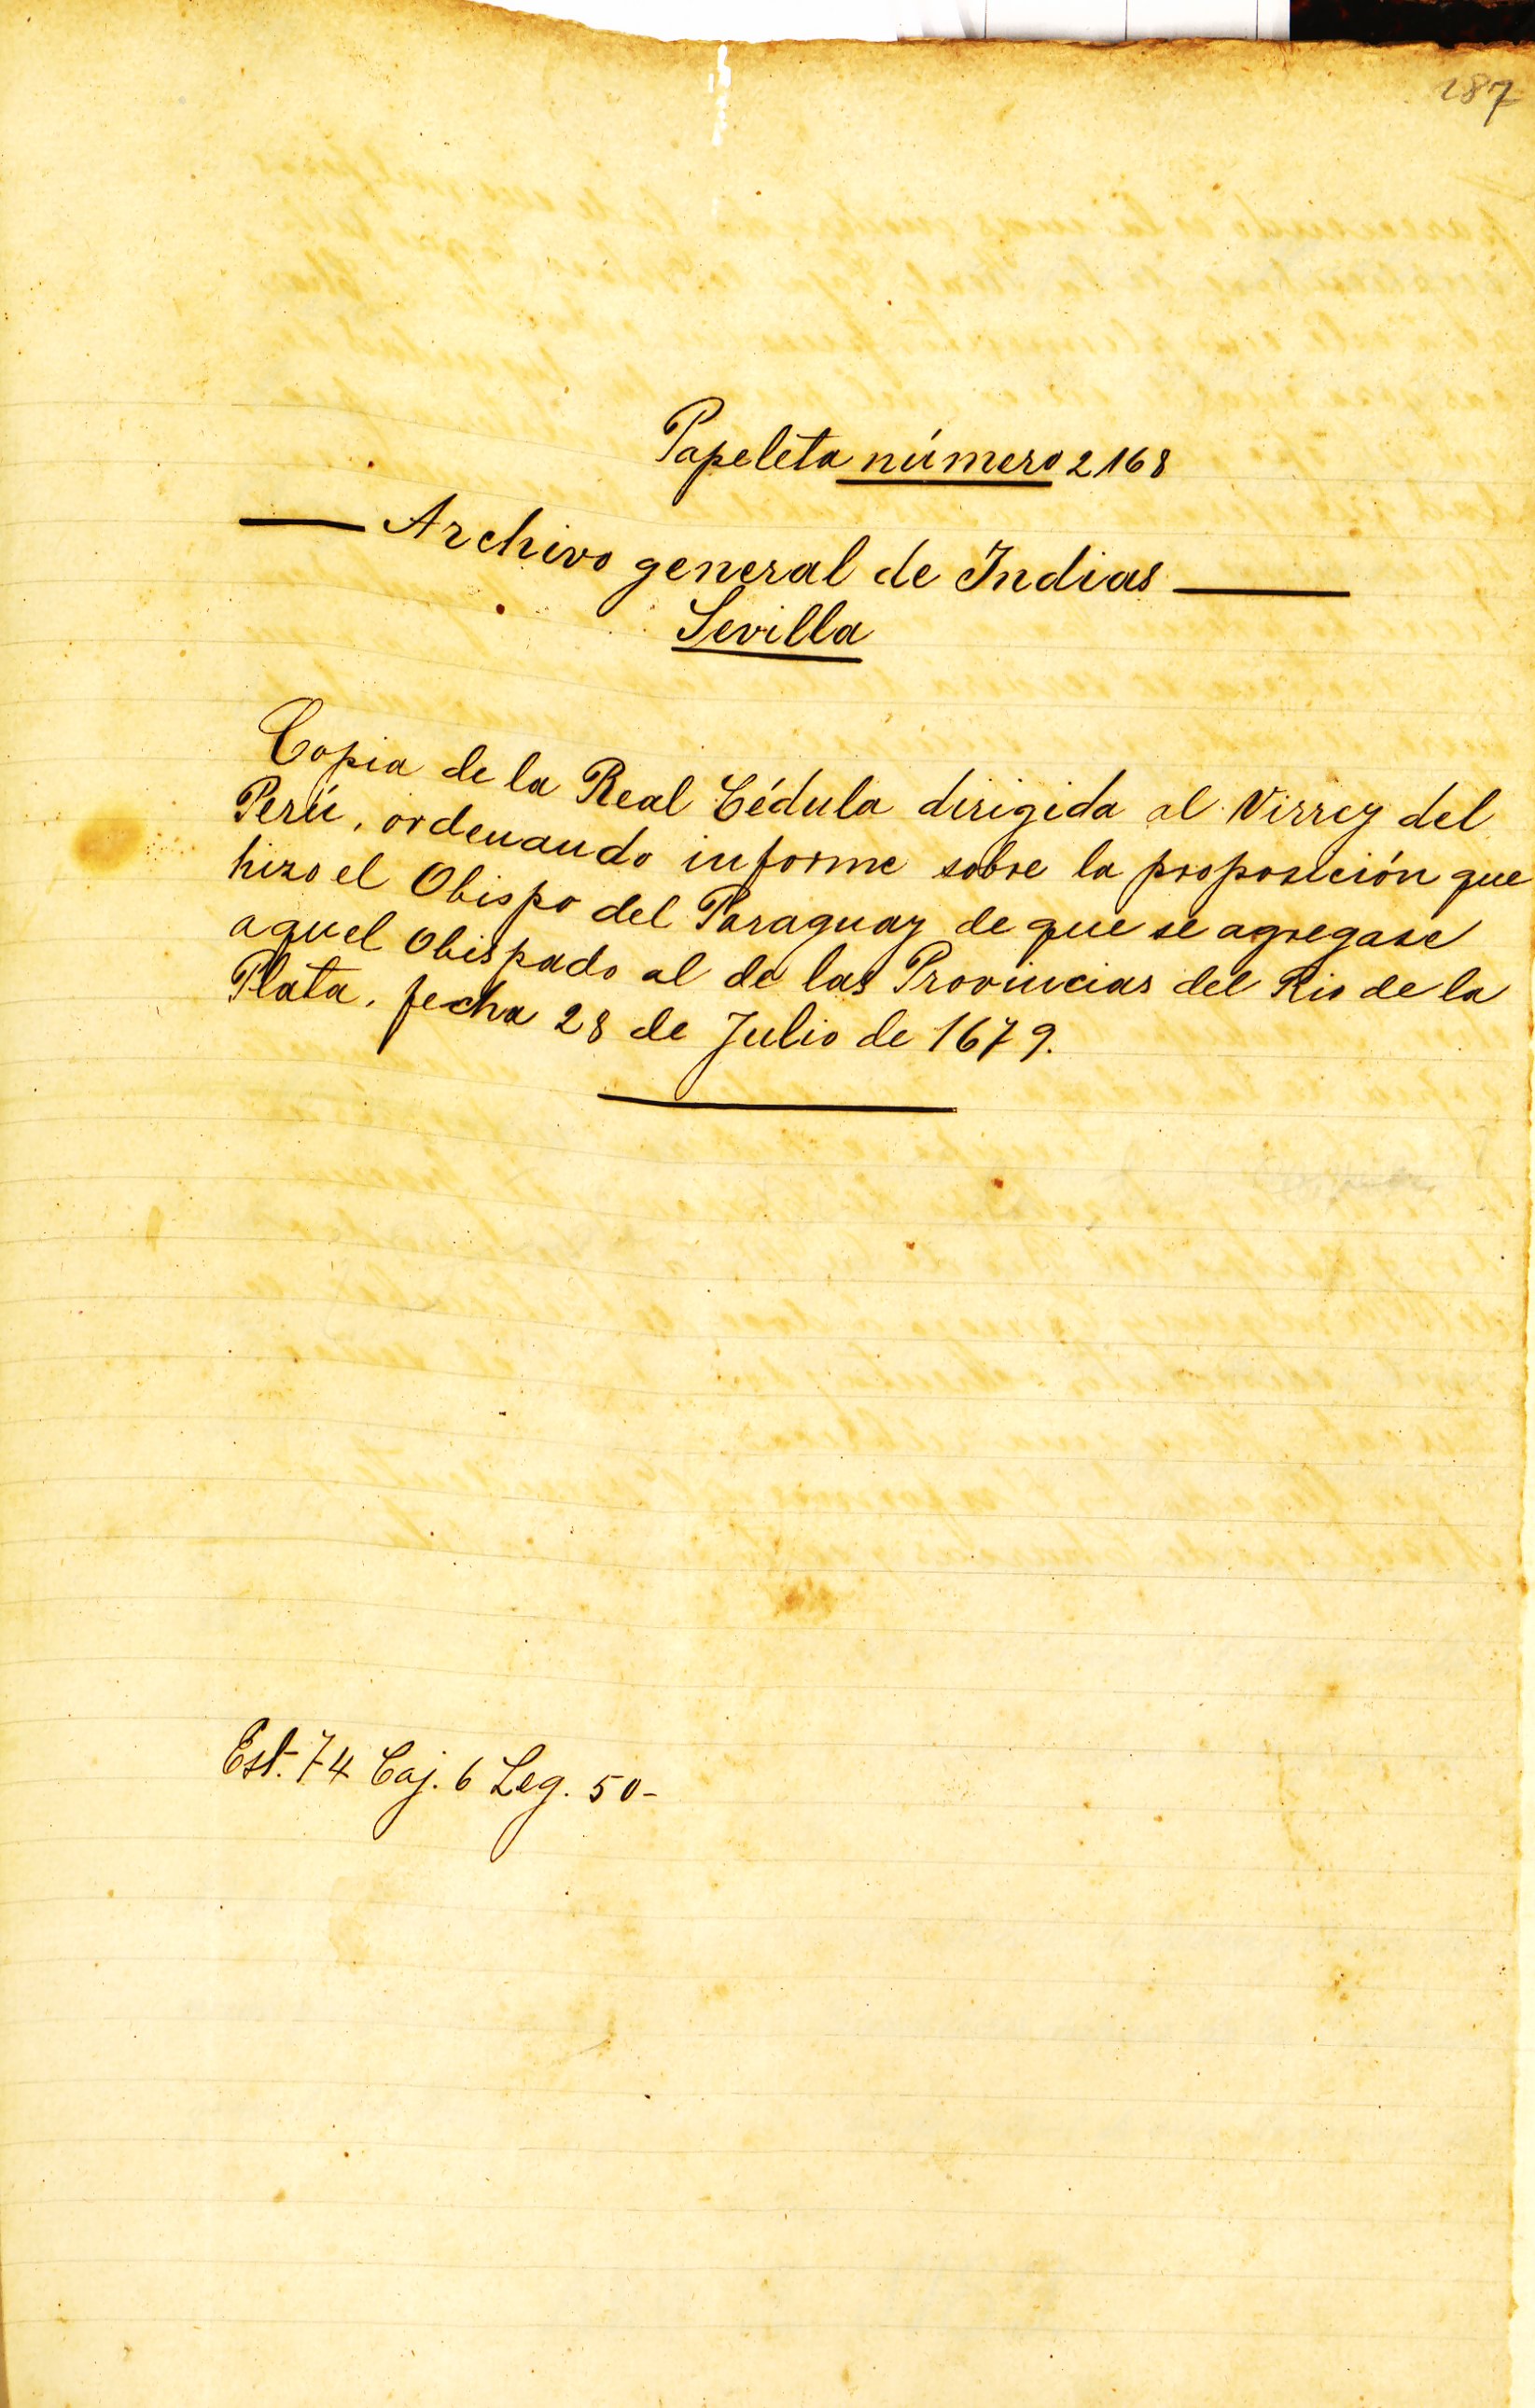 187
Papeleta número 2168
Archivo general de Indias
Sevilla
Copia de la Real Cédula dirigida al Virrey del
Perú, ordenando informe sobre la proposición que
hizo el Obispo del Paraguay de que se agregase
aquel Obispado al de las Provincias del Rio de la
Plata. fecha 28 de Julio de 1679.
Est. 74 Caj. 6 Leg. 50-